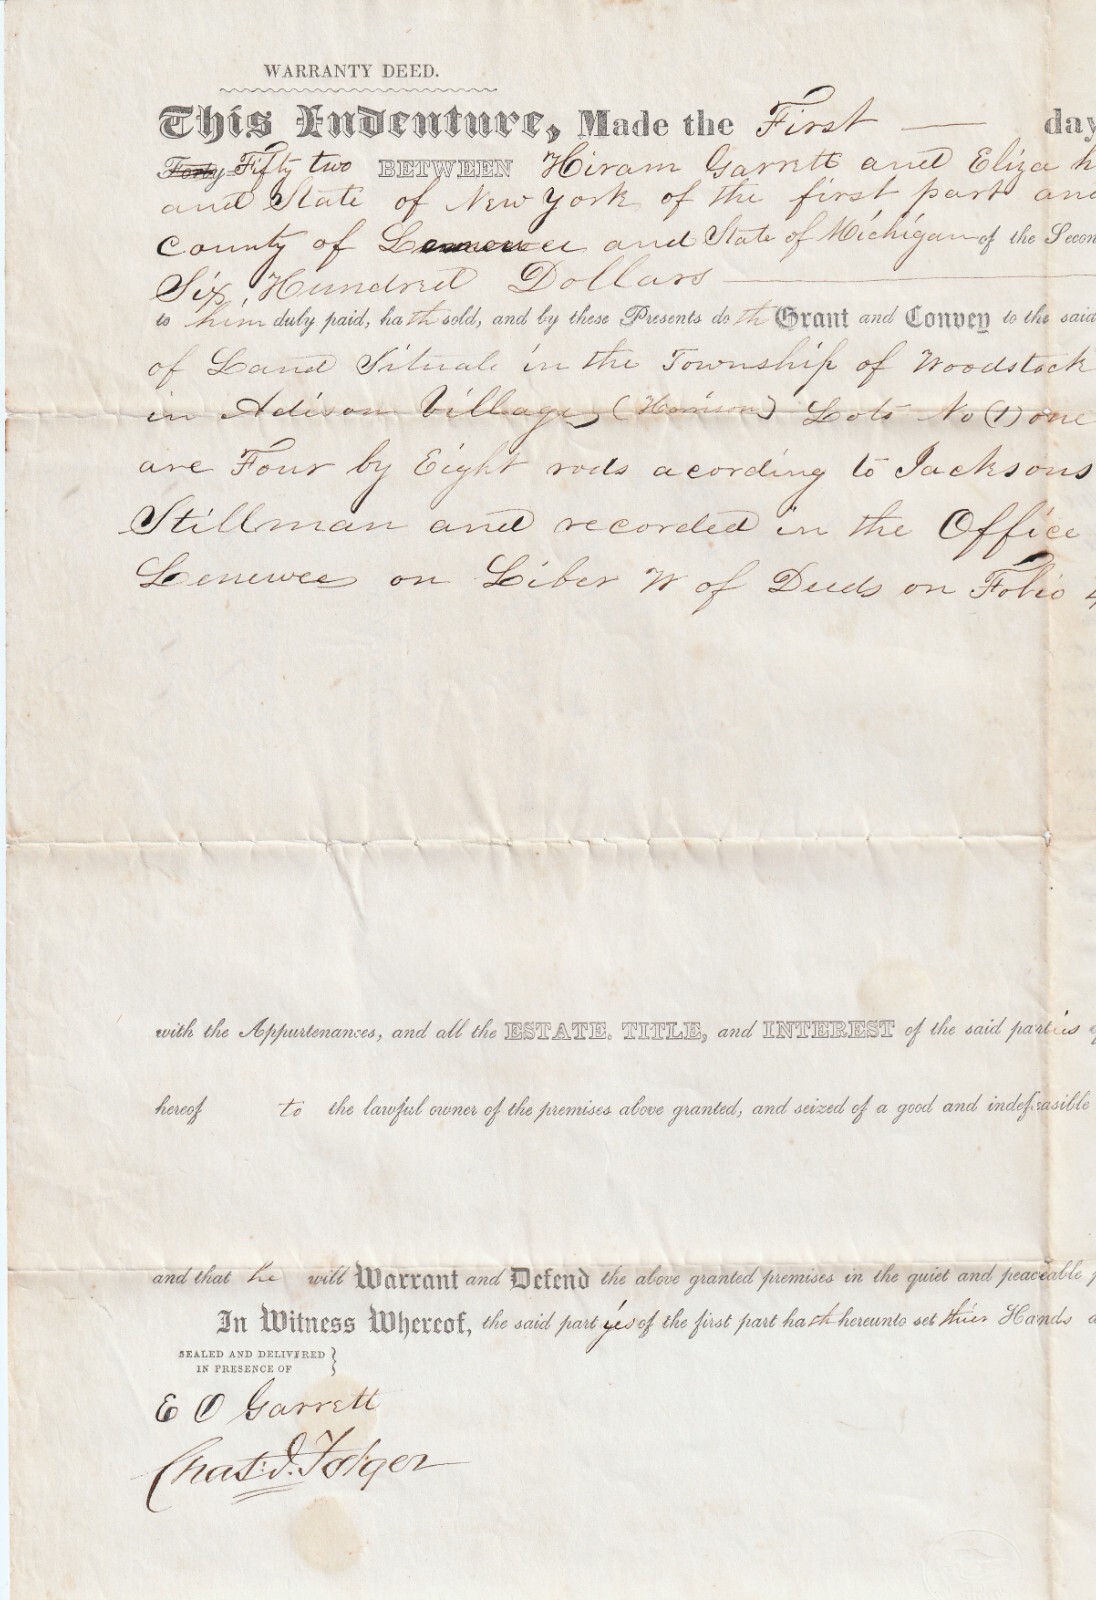 WARRANTY DEED.
This Indenture, Made the First — day
Forty Fifty two BETWEEN Hiram Garrett and Eliza h
and State of New York of the first part and
County of Lenewee and State of Michigan of the Secon
Six Hundred Dollars
to him duly paid, hath sold, and by these Presents doth Grant and Convey to the said
of Land Situate in the Township of Woodstock
in Adison Village (Harrison) Lots No (1) one
are Four by Eight rods acording to Jacksons
Stillman and recorded in the Office
Lenewee on Liber W of Deeds on Folio 4
with the Appurtenances, and all the ESTATE. TITLE, and INTEREST of the said parties of
hereof to the lawful owner of the premises above granted, and seized of a good and indefeasible
and that he will Warrant and Defend the above granted premises in the quiet and peaceable p
In Witness Whereof, the said part yes of the first part hath hereunto set thier Hands a
SEALED AND DELIVERED }
IN PRESENCE OF
E O Garrett
Chas. J. Folger